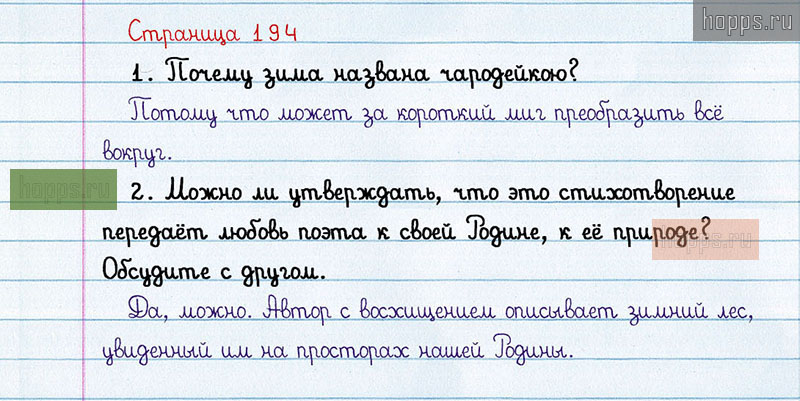 hopps.ru
Страница 194
1. Почему зима названа чародейкою?
Потому что может за короткий миг преобразить всё
вокруг.
hopps.ru
2. Можно ли утверждать, что это стихотворение
передаёт любовь поэта к своей Родине, к её природе?
hopps.ru
Обсудите с другом.
Да, можно. Автор с восхищением описывает зимний лес,
увиденный им на просторах нашей Родины.